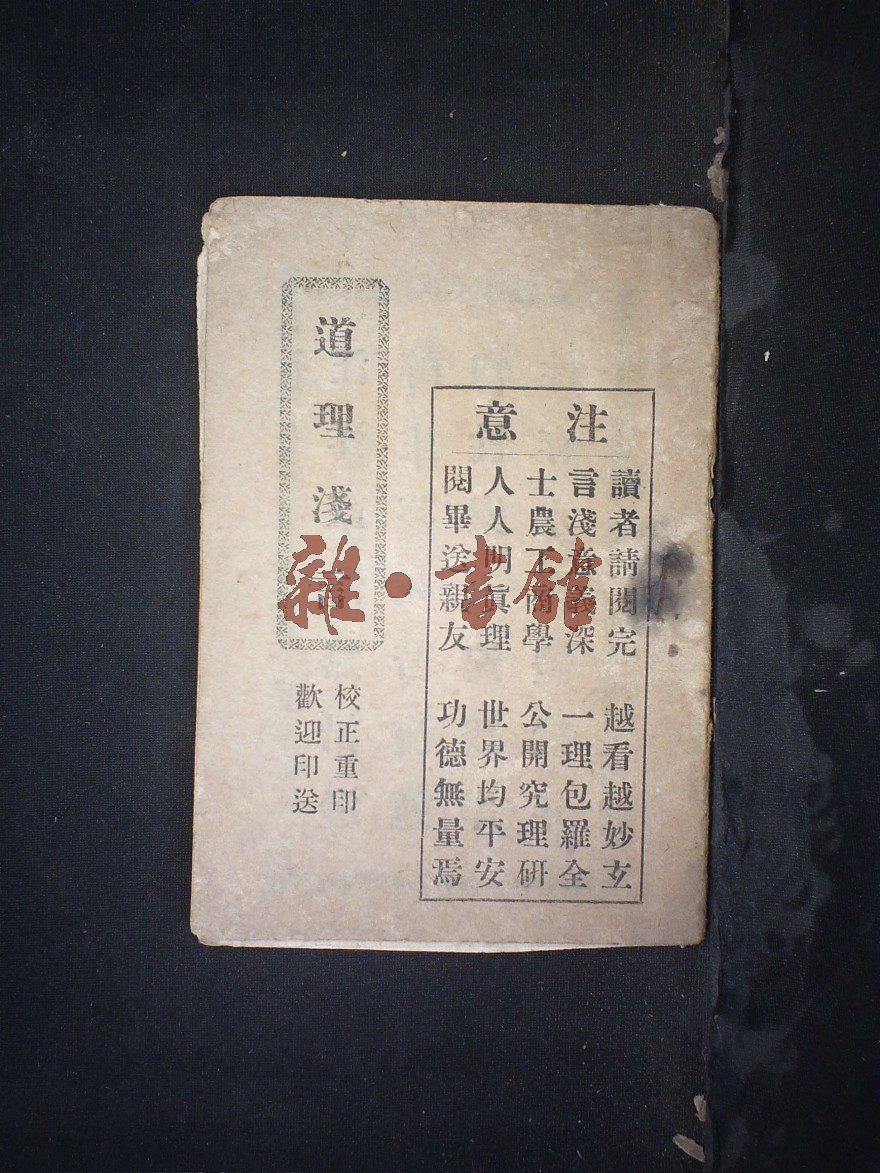 注意
讀者請閱完 越看越妙玄
言淺意義深 一理包羅全
士農工商學 公開究理研
人人明眞理 世界均平安
閱畢送親友 功德無量焉
道理淺言
校正重印
歡迎印送
雜·書館